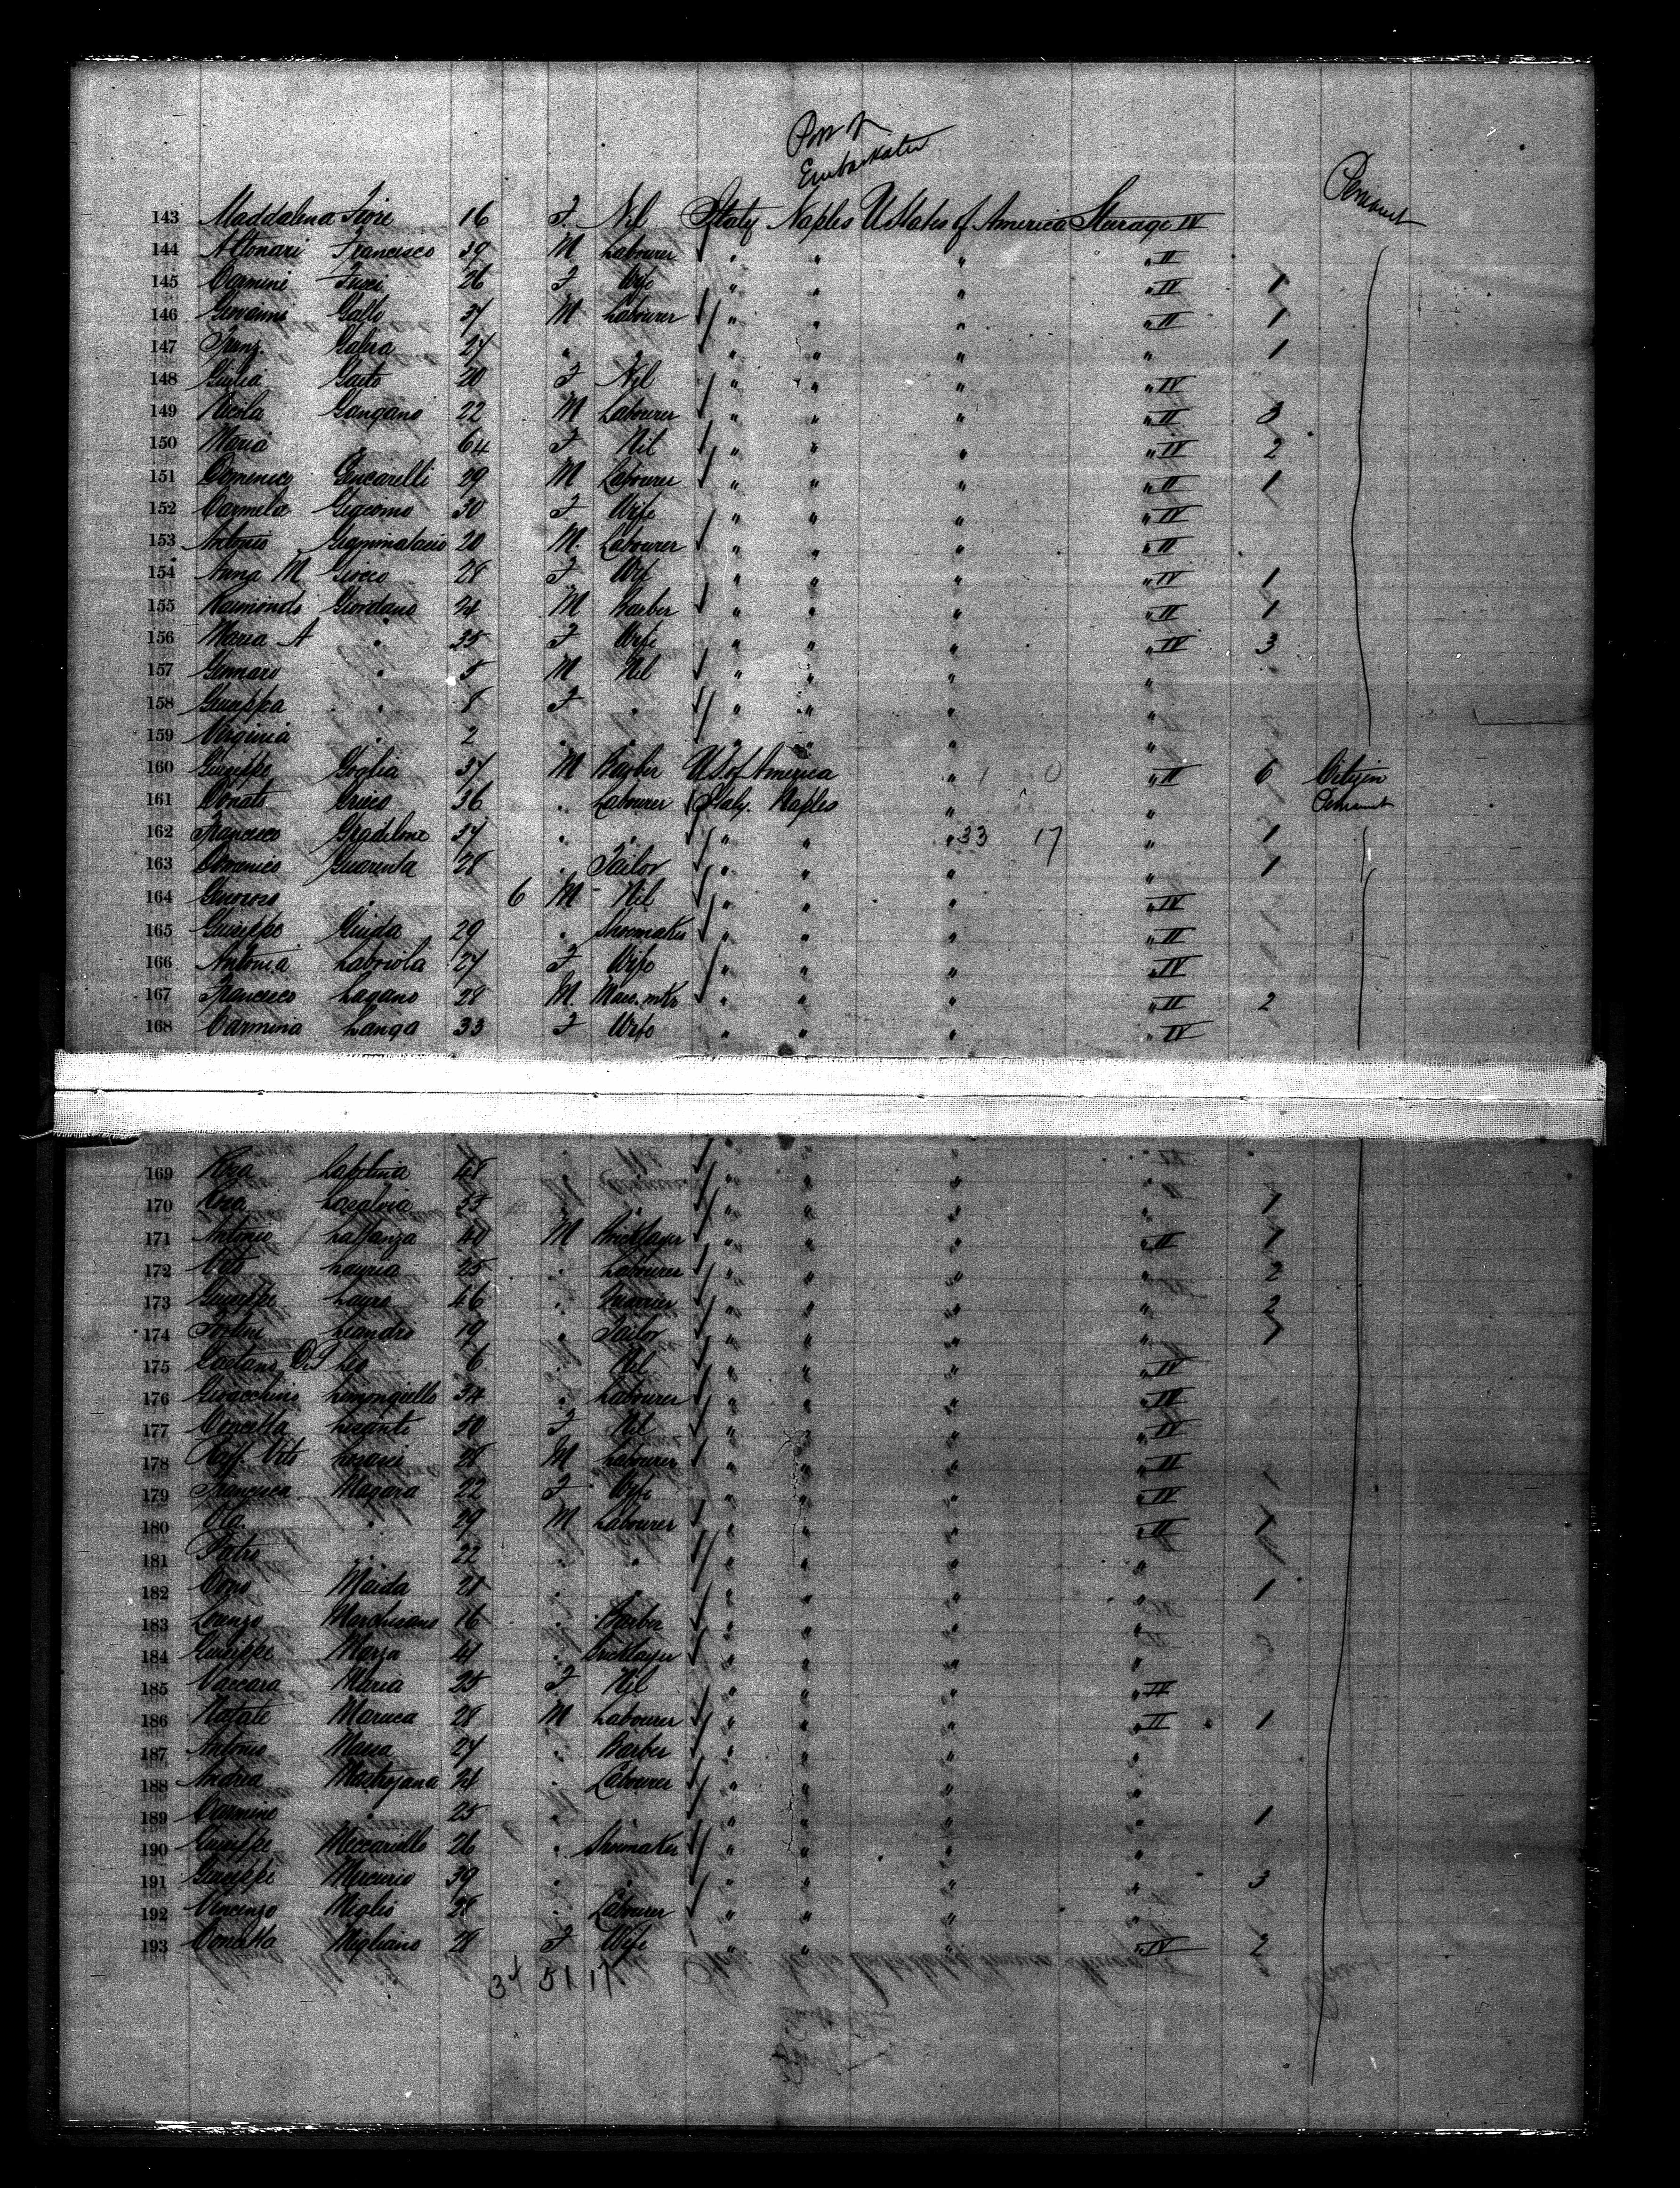 Port of
Embarkation
143 Maddalena Fiore 16 F. Nil Italy Naples U States of America Steerage IV
144 Altonari Francesco 39 M Labourer " " " " II
145 Carmine Fucci 26 F Wife " " " " IV 1
146 Giovanni Gallo 37 M Labourer " " " " II 1
147 Franz. Galva 27 " " " " " " 1
148 Giulia Gaeto 20 F Nil " " " " IV
149 Nicola Gangano 22 M Labourer " " " " II 3
150 Maria " 64 F Nil " " " " IV 2
151 Domenico Gencarelli 29 M Labourer " " " " II 1
152 Carmela Giacomo 30 F Wife " " " " IV
153 Antonio Giammatasio 20 M. Labourer " " " " II
154 Anna M Giocco 28 F Wife " " " " IV 1
155 Raimondo Giordano 24 M Barber " " " " II 1
156 Maria A " 35 F Wife " " " " IV 3
157 Gennaro " 5 M Nil " " " "
158 Giuseppa " 8 F " " " " "
159 Virginia " 2 " " " " " "
160 Giuseppe Goglia 37 M Barber U.S. of America " " II 6 Citizen
161 Donato Grieco 36 " Labourer Italy. Naples " "
162 Francesco Gradilone 37 " " " " " 33 17 " 1
163 Domenico Guarenta 28 " Tailor " " " " 1
164 Generoso " 6 M Nil " " " " IV
165 Giuseppe Guida 29 " Shoemaker " " " " II
166 Antonia Labriola 27 F Wife " " " " IV
167 Francesco Lagano 28 M. " " " " II 2
168 Carmina Langa 33 F Wife " " " " IV
169 Rosa 48 " " " "
170 Rosa Lasalvia 33 " " " " 1
171 Antonio 40 M Bricklayer " " " " II 1
172 Vito Lauria 25 " Labourer " " " " 2
173 Giuseppe Lauro 46 " " " " " 2
174 Leandro 19 " Tailor " " " " 1
175 Gaetano Di Leo 6 " Nil " " " " IV
176 Gioacchino Limongiello 34 " Labourer " " " "
177 Concetta Lisanti 50 F Nil " " " " IV
178 Raff. Vito 28 M Labourer " " " " II
179 Francesca Magara 22 F Wife " " " " IV
180 " 29 M Labourer " " " " II 1
181 Pietro " 22 " " " " " "
182 Cono Maida 21 " " " " " " 1
183 Lorenzo Marchisano 16 " Barber " " " "
184 Giuseppe Marza 41 " Bricklayer " " " "
185 Vaccara Maria 25 F Nil " " " " IV
186 Natale Maruca 28 M Labourer " " " " II 1
187 Antonio Massa 27 " Barber " " " "
188 Andrea Mastrojana 24 " Labourer " " " "
189 Carmino " 25 " " " " " " 1
190 Giuseppe Meccariello 26 " Shoemaker " " " "
191 Giuseppe Mercurio 39 " " " " " " 3
192 Vincenzo Miglio 28 " Labourer " " " "
193 Donatta Migliano 28 F Wife " " " " IV 2
34 51 17